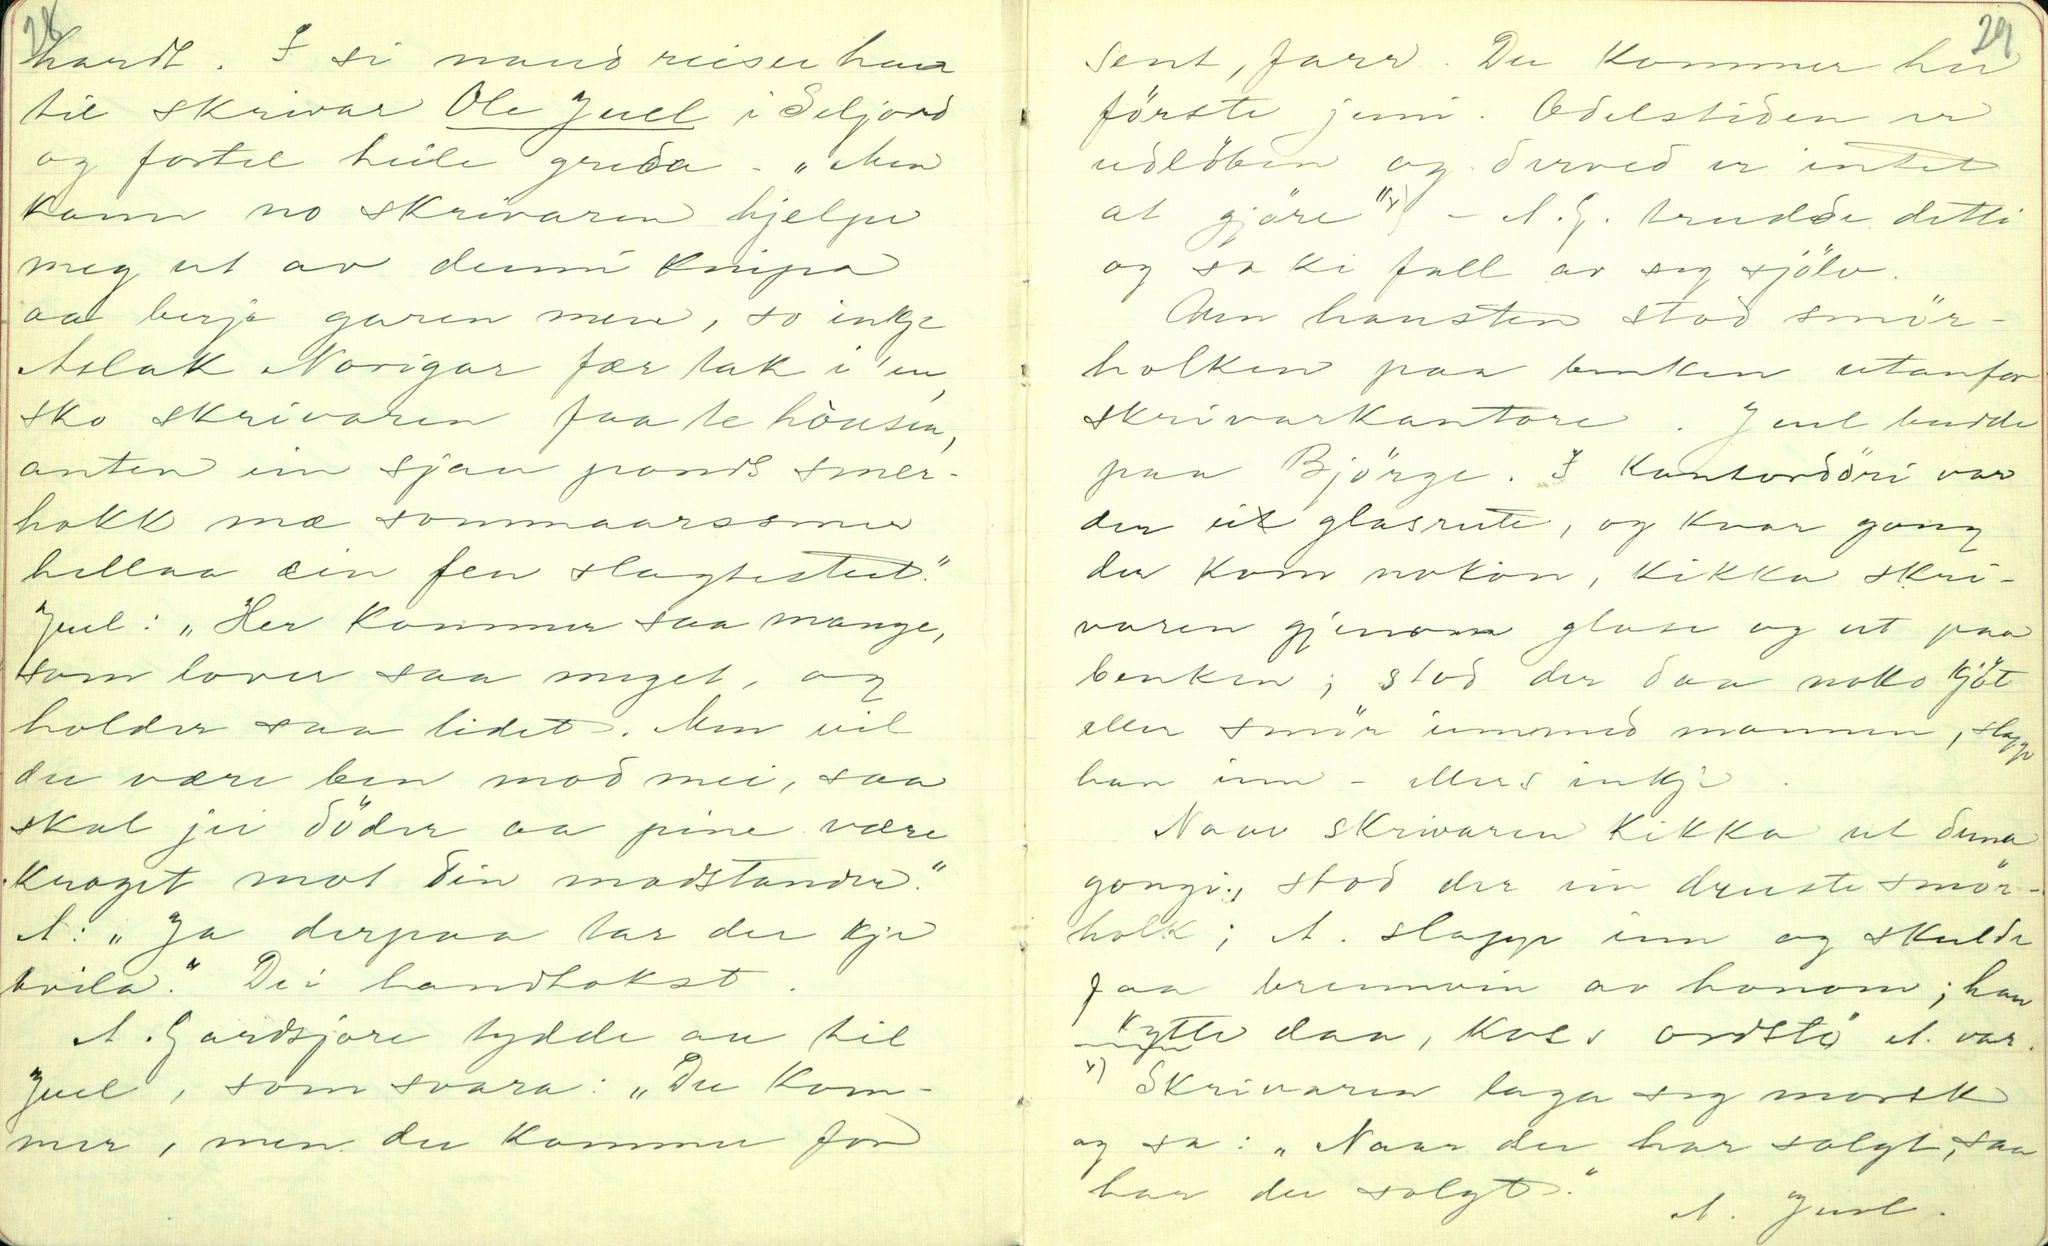 28
hardt. I si naud reiser han
til skrivar Ole Juel i Seljord
og fortel heile greida - „Men
kann no skrivaren hjelpe
meg ut av denni knipa
aa berje garen min, so inkje
Aslak Norigar fær tak i 'en,
sko skrivaren faa te hòusen,
anten ein sjau punds smer-
hokk mæ sommaarssmer
hellaa ein fen slagtestut."
Juel: „Her kommer saa mange,
som lover saa meget, og
holder saa lidet. Men vil
du være ben mod mei, saa
skal jei döder aa pine være
kroget mot din modstander."
A: „Ja derpaa tar du kje
kvila." Dei handtokst.
A. Gardsjore tydde au til
Juel, som svara: „Du kom-
mer, men du kommer for
29
sent, farr. Du kommer her
förste juni. Odelstiden er
udlöben og derved er intet
at gjöre" x) - A. G. trudde detti
og sa ki fall av seg sjölv.
Um hausten stod smör-
holken paa benken utanfor
skrivarkantore. Juel budde
paa Björge. I kantordöri var
der eit glasrute, og kvar gong
der kom nokon, kikka skri-
varen gjenom glase og ut paa
benken; stod der daa noko kjöt
eller smör innmed mannen, slapp
han inn - ellers inkje.
Naar skrivaren kikka ut denna
gongi, stod der ein druste smör-
holk; A. slapp inn og skulde
faa brennvin av honom; han
kytte daa, koss ordstö A. var.
x) Skrivaren laga seg morsk
og sa: „Naar du har solgt, saa
har du solgt."
A. Juel.